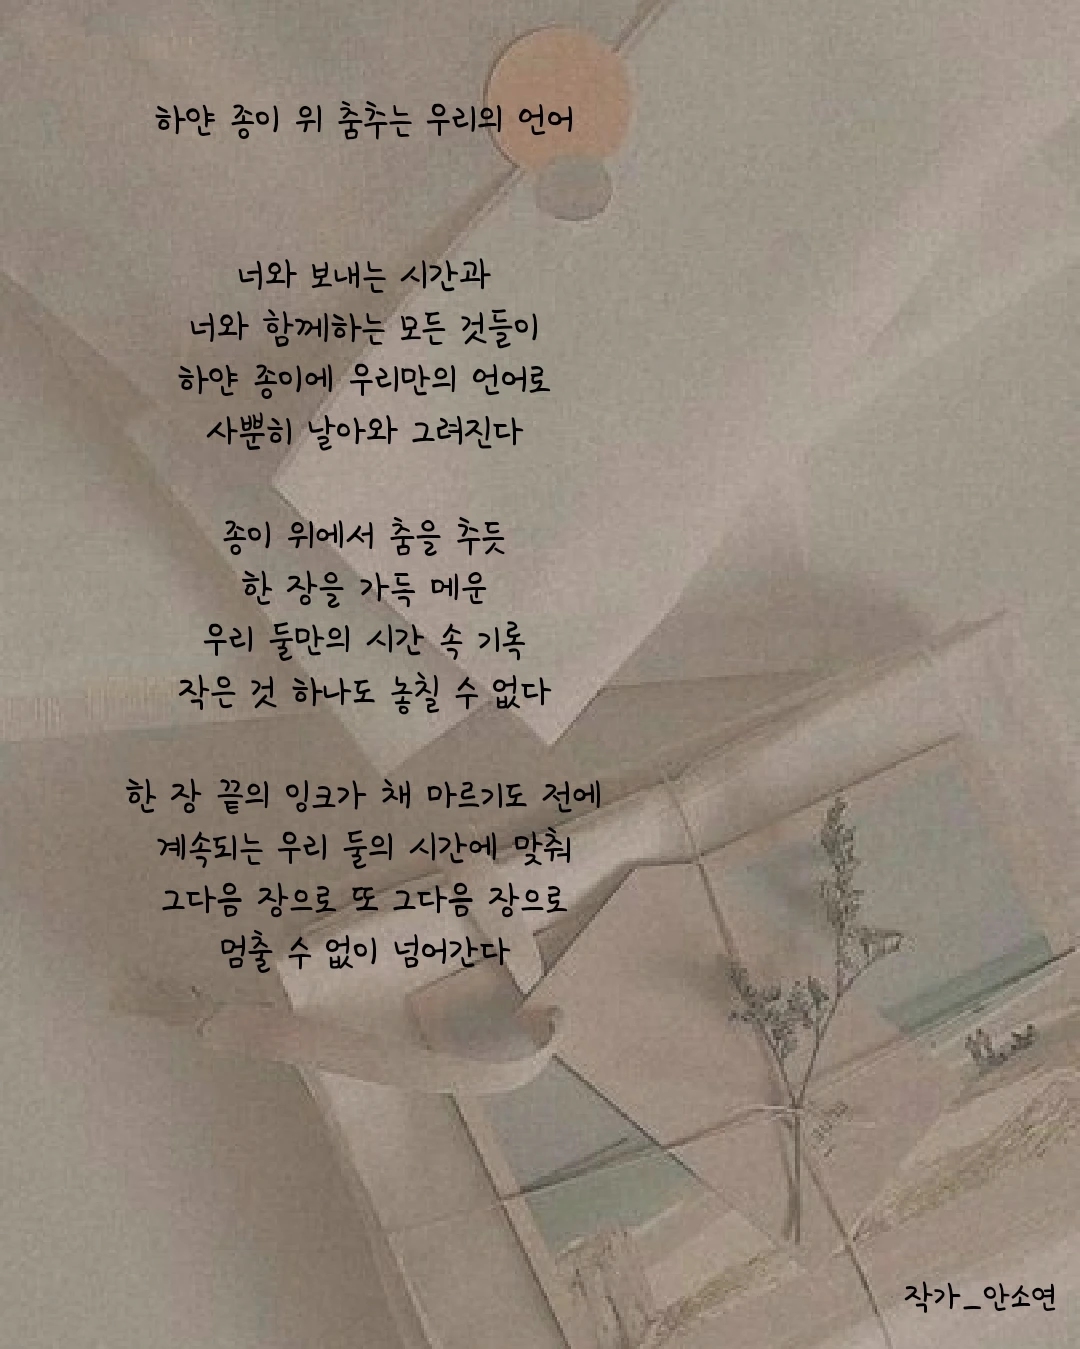 하얀 종이 위 춤추는 우리의 언어
너와 보내는 시간과
너와 함께하는 모든 것들이
하얀 종이에 우리만의 언어로
사뿐히 날아와 그려진다
종이 위에서 춤을 추듯
한 장을 가득 메운
우리 둘만의 시간 속 기록
작은 것 하나도 놓칠 수 없다
한 장 끝의 잉크가 채 마르기도 전에
계속되는 우리 둘의 시간에 맞춰
그다음 장으로 또 그다음 장으로
멈출 수 없이 넘어간다
작가_안소연